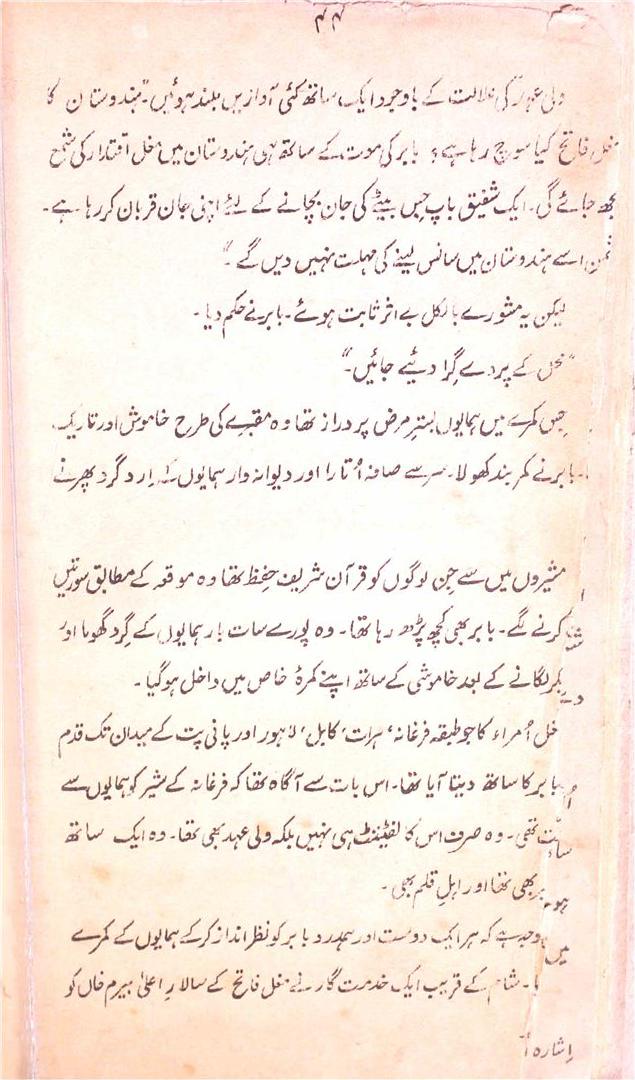 ۴۴
ولی عہد کی علالت کے باوجود ایک ساتھ کئی آوازیں بلند ہوئیں۔ "ہندوستان کا
مغل فاتح کیا سوچ رہا ہے؟ بابر کی موت کے ساتھ ہی ہندوستان میں مغل اقتدار کی شمع
بجھ جائے گی۔ ایک شفیق باپ جس بیٹے کی جان بچانے کے لئے اپنی جان قربان کر رہا ہے۔
اسے ہندوستان میں سانس لینے کی مہلت نہیں دیں گے۔"
لیکن یہ مشورے بالکل بے اثر ثابت ہوئے۔ بابر نے حکم دیا۔
کے پردے گرا دئیے جائیں۔"
جس کمرے میں ہمایوں بسترِ مرض پر دراز تھا وہ مقبرے کی طرح خاموش اور تاریک
بابر نے کمر بند کھولا۔ سر سے صافہ اُتارا اور دیوانہ وار ہمایوں کے اِرد گرد پھرنے
مشیروں میں سے جن لوگوں کو قرآن شریف حفظ تھا وہ موقعہ کے مطابق سورتیں
کرنے لگے۔ بابر بھی کچھ پڑھ رہا تھا۔ وہ پورے سات بار ہمایوں کے گِرد گھوما اور
لگانے کے بعد خاموشی کے ساتھ اپنے کمرۂ خاص میں داخل ہو گیا۔
اُمراء کا جو طبقہ فرغانہ، ہرات، کابل، لاہور اور پانی پت کے میدان تک قدم
بابر کا ساتھ دیتا آیا تھا۔ اس بات سے آگاہ تھا کہ فرغانہ کے شیر کو ہمایوں سے
تھی۔ وہ صرف اس کا لفٹیننٹ ہی نہیں بلکہ ولی عہد بھی تھا۔ وہ ایک ساتھ
بھی تھا اور اہلِ قلم بھی۔
وجہ ہے کہ ہر ایک دوست اور ہمدرد بابر کو نظر انداز کر کے ہمایوں کے کمرے
میں
شام کے قریب ایک خدمت گار نے مغل فاتح کے سالارِ اعلیٰ بیرم خاں کو
اِشارہ